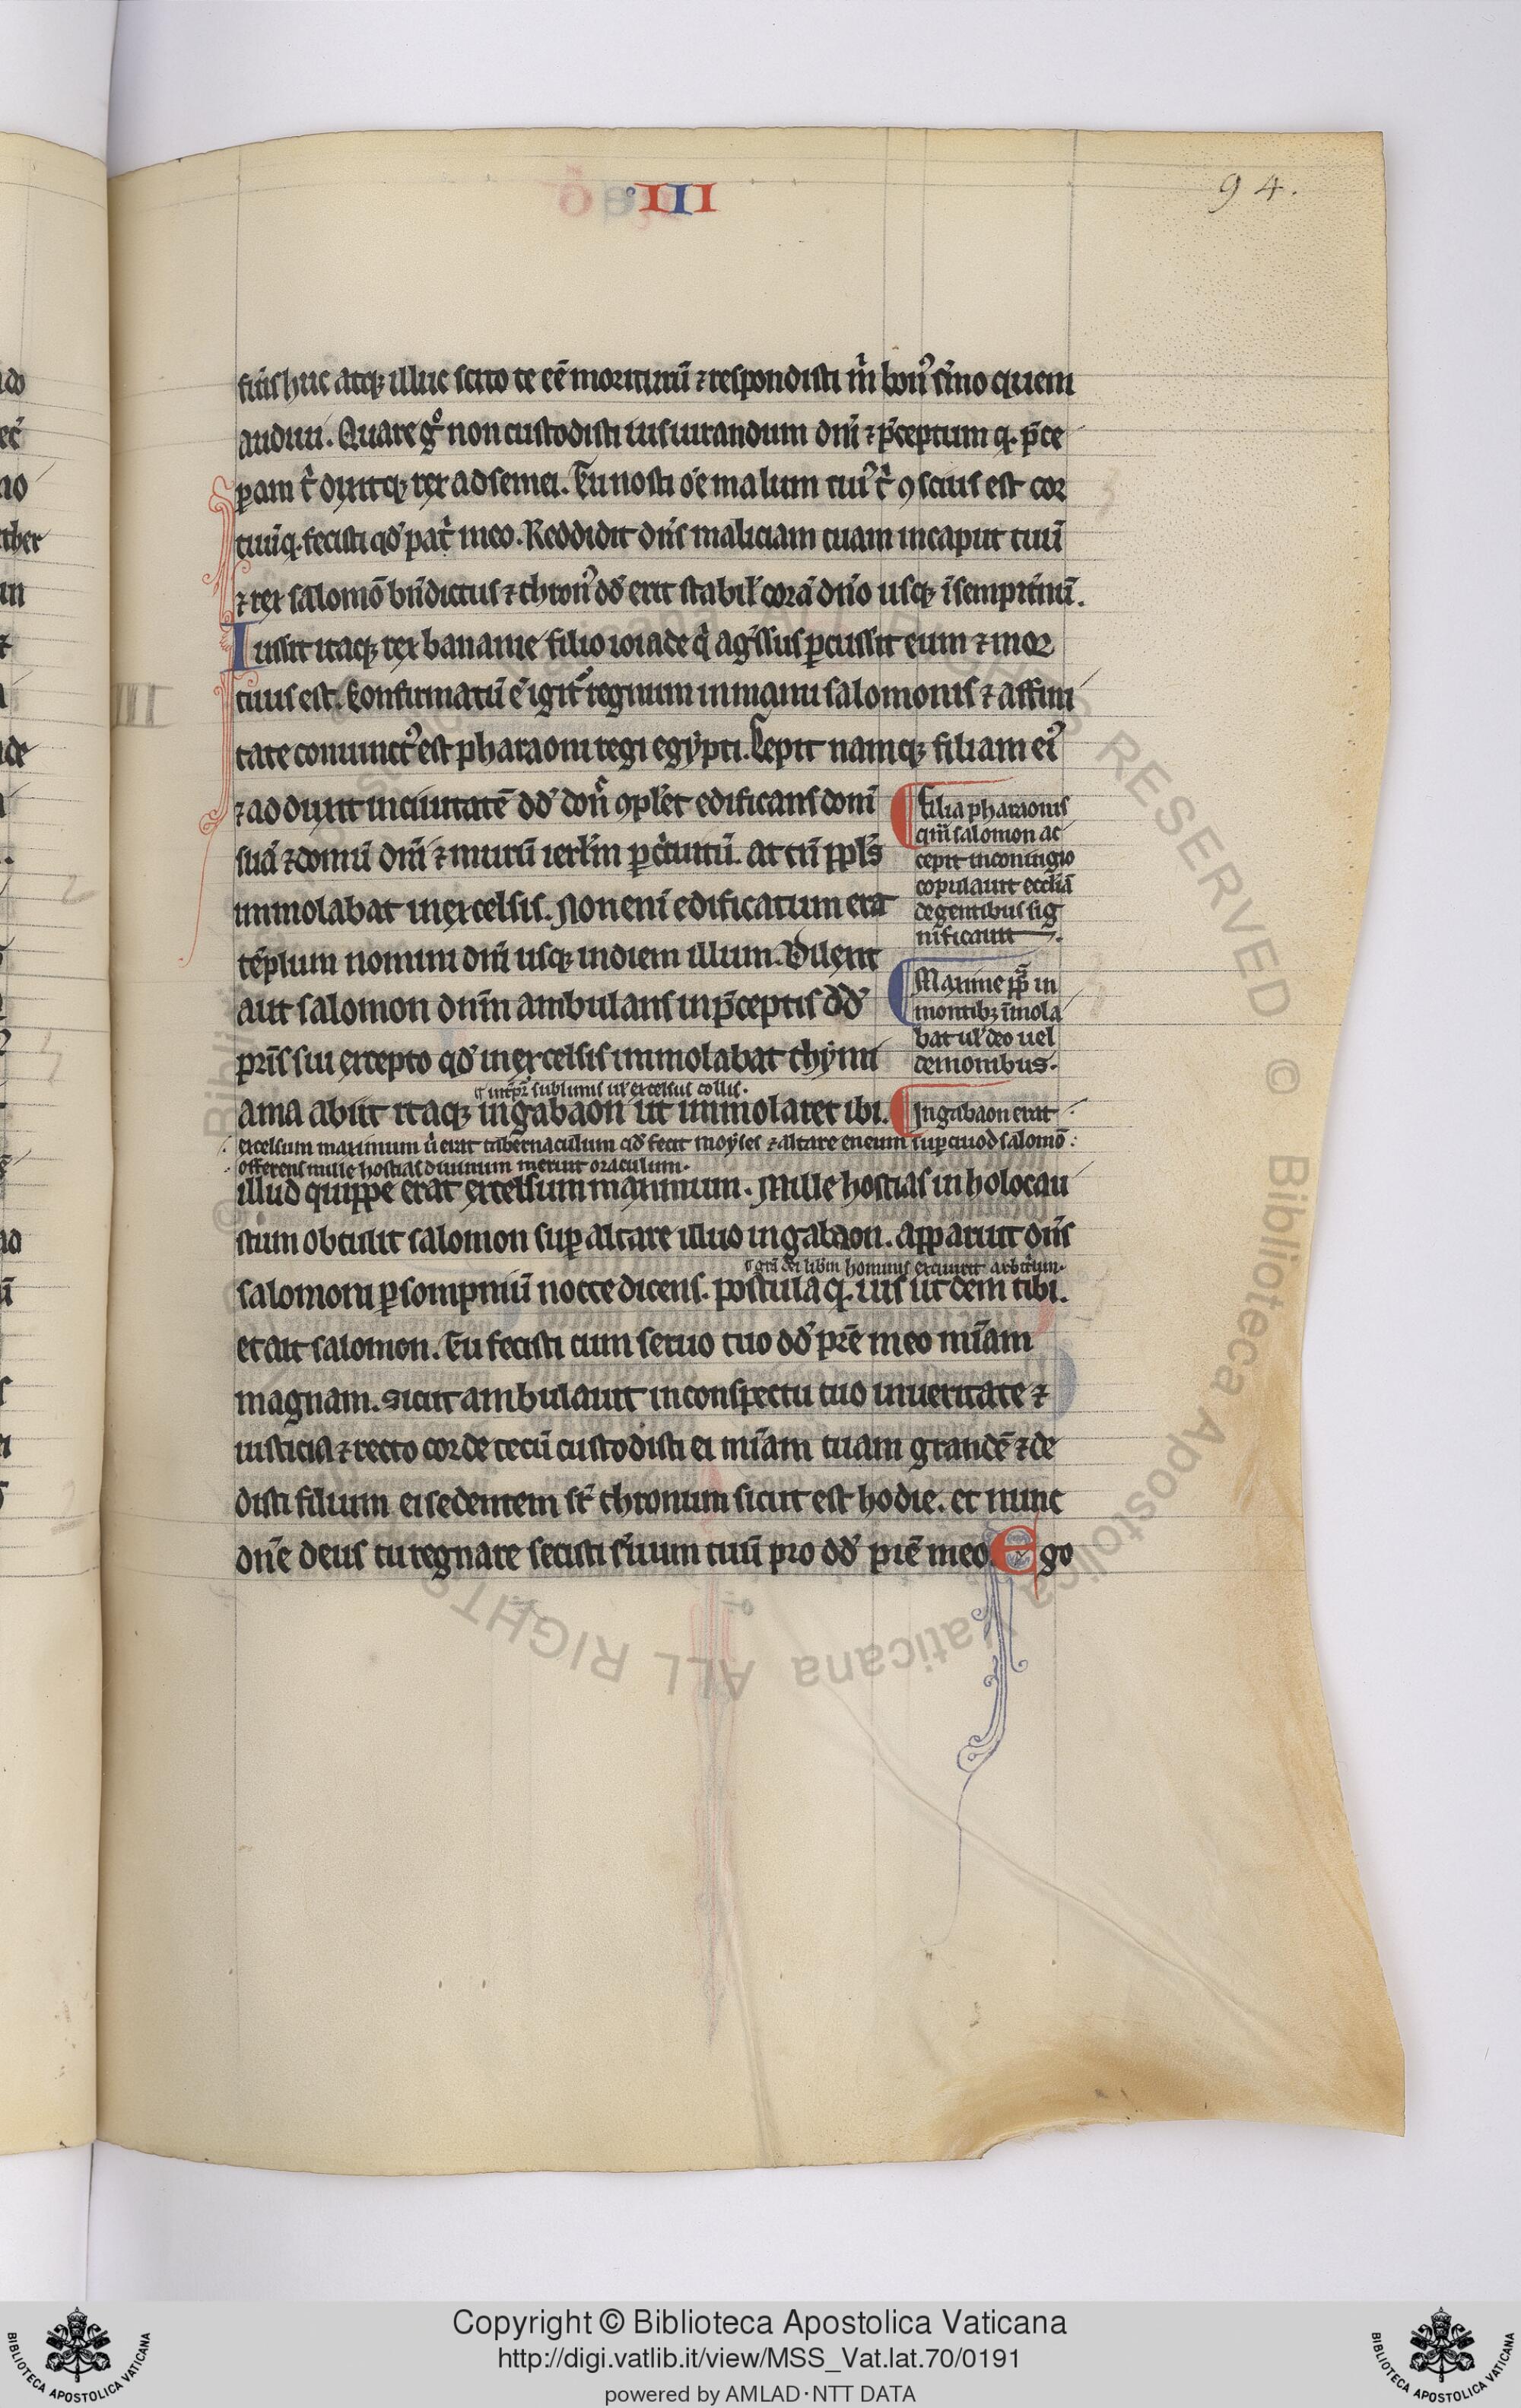 III
94.
fueris huc atq; illuc scito te eē moriturū ⁊ respondisti m̄ bon᷒ s̄mo quem
audiui. Quare gͦ non custodisti iusiurandum dn̄i ⁊ p̄ceptum q. p̄ce
ꝑam t̄ dixitq; rex ad semei. Tu nosti oē malum cui᷒ t̄ ꝯscius est cor
tuū q. fecisti qd̓ pat̄ meo. Reddidit dn̄s maliciam tuam in caput tuū
⁊ rex salomō bn̄dictus ⁊ thron᷒ dd̓ erit stabil̓ corā dn̄o usq; ī sempit̄nū.
Iussit itaq; rex bananie filio ioiade q̄ ag̓ssus ꝑcussit eum ⁊ mor
tuus est. Confirmatū ē igit᷒ regnum in manu salomonis ⁊ affini
tate coniunct᷒ est pharaoni regi egypti. Cepit namq; filiam ei᷒
⁊ adduxit in ciuitatē dd̓ don̄ ꝯpleret edificans domū
suā ⁊ domū dn̄i ⁊ murū ierl̄m ꝑ c̄cuitū. at tn̄ ppl̄s
immolabat in excelsis. Non eni edificatum erat
tēplum nomini dn̄i usq; in diem illum. Dilexit
aut salomon dn̄m ambulans in p̄ceptis dd̓
pr̄is sui excepto qd̓ in excelsis immolabat thymi
¶ int̄pr̄ sublimis ul̓ excelsus collis.
ama abiit itaq; in gabaon ut immolaret ibi.
Filia pharaonis
quā salomon ac
cepit in coniugio
copulauit eccl̄iā
de gentibus sig
nificauit
Maxime ꝓp̄ in
montib; īmola
bat ul̓ deo uel
demonibus.
In gabaon erat
excelsum maximum ū erat tabernaculum qd̓ fecit moyses ⁊ altare eneum suꝑ quod salomō
offerens mille hostias diuinum meruit oraculum.
illud quippe erat excelsum maximum. Mille hostias in holocau
stum obtulit salomon suꝑ altare illud in gabaon. apparuit dn̄s
¶ gr̄a dei lib̄m hominis excitauit arbitrium.
salomoni ꝑ sompniū nocte dicens. postula q. uis ut dem tibi.
et ait salomon. Tu fecisti cum seruo tuo dd̓ pr̄e meo mīam
magnam. sicut ambulauit in conspectu tuo in ueritate ⁊
iusticia ⁊ recto corde tecū custodisti ei mīam tuam grandē ⁊ de
disti filium ei sedentem sr̄ thronum sicut est hodie. et nunc
dn̄e deus tu regnare fecisti s̓uum tuū pro dd̓ pr̄e meo Ego
Copyright © Biblioteca Apostolica Vaticana
http://digi.vatlib.it/view/MSS_Vat.lat.70/0191
powered by AMLAD·NTT DATA